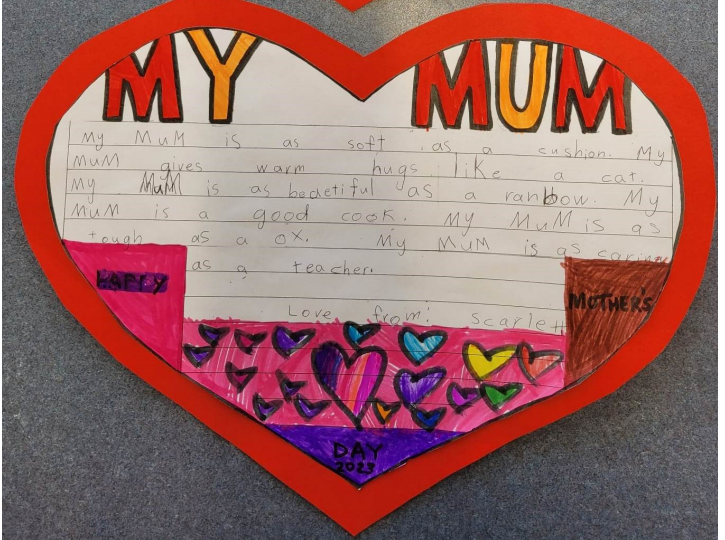 MY MUM
My MuM is as soft as a cushion. My
MuM gives warm hugs like a cat.
My MuM is as bedetiful as a ranbow. My
MuM is a good cook. My MuM is as
tough as a ox. My MuM is as caring
as a teacher.
Love from: Scarlett
HAPPY
MOTHER'S
DAY
2023